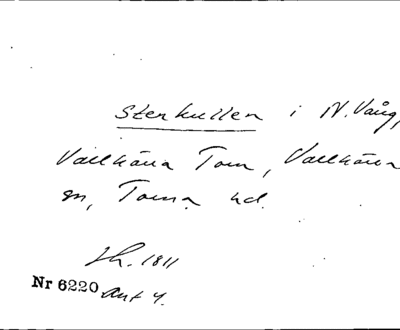 Stenkullen i N. Vång,
Vallkärra Torn, Vallkärra
sn, Torna hd.
Sk. 1811
Nr 6220 Akt 4.